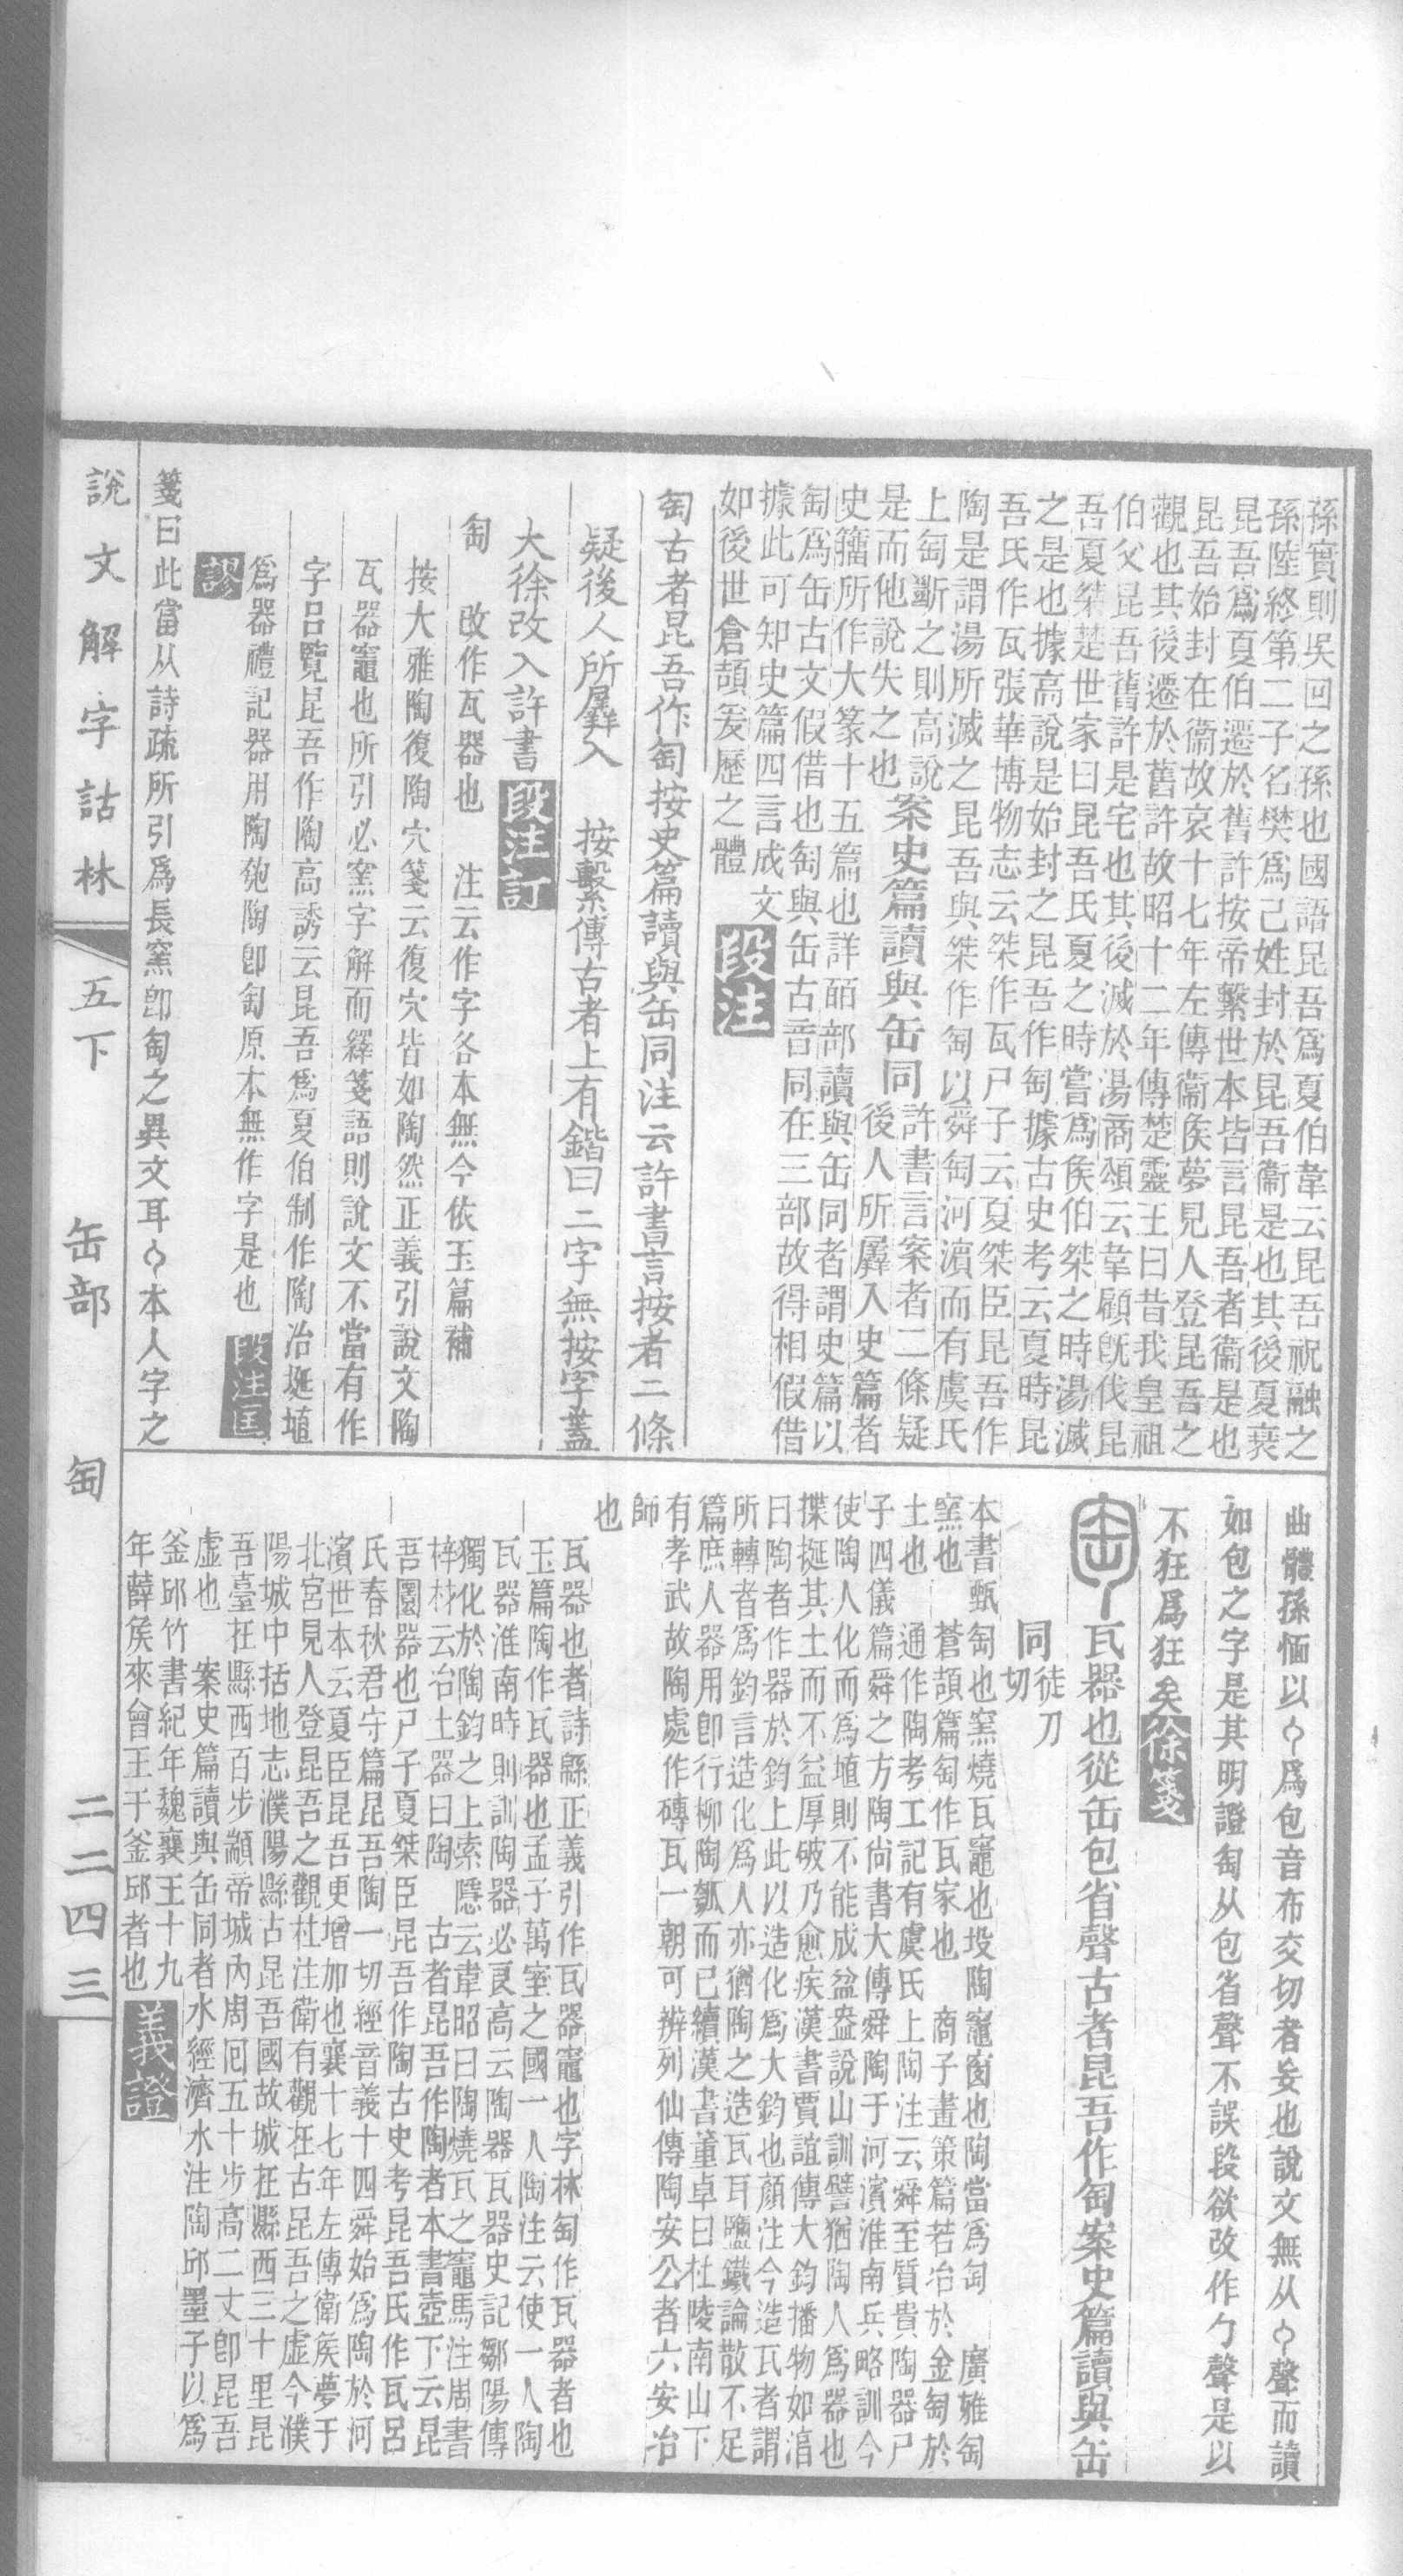 孫實則吳回之孫也國語昆吾爲夏伯韋云昆吾祝融之
孫陸終第二子名樊爲己姓封於昆吾衞是也其後夏衰
昆吾爲夏伯遷於舊許按帝繫世本皆言昆吾者衞是也
昆吾始封在衞故哀十七年左傳衞侯夢見人登昆吾之
觀也其後遷於舊許故昭十二年傳楚靈王曰昔我皇祖
伯父昆吾舊許是宅也其後滅於湯商頌云韋顧旣伐昆
吾夏桀楚世家曰昆吾氏夏之時嘗爲侯伯桀之時湯滅
之是也據高說是始封之昆吾作匋據古史考云夏時昆
吾氏作瓦張華博物志云桀作瓦尸子云夏桀臣昆吾作
陶是謂湯所滅之昆吾與桀作匋以舜匋河濵而有虞氏
上匋斷之則高說
是而他說失之也
案史篇讀與缶同
許書言案者二條疑
後人所羼入史篇者
史籒所作大篆十五篇也詳皕部讀與缶同者謂史篇以
匋爲缶古文假借也匋與缶古音同在三部故得相假借
據此可知史篇四言成文
如後世倉頡爰歷之體
段注
匋古者昆吾作匋按史篇讀與缶同注云許書言按者二條
疑後人所羼入 按繫傳古者上有鍇曰二字無按字蓋
大徐改入許書 段注訂
匋 改作瓦器也 注云作字各本無今依玉篇補
按大雅陶復陶穴箋云復穴皆如陶然正義引說文陶
瓦器竈也所引必窯字解而繹箋語則說文不當有作
字呂覽昆吾作陶高誘云昆吾爲夏伯制作陶冶埏埴
爲器禮記器用陶匏陶卽匋原本無作字是也 段注匡
謬
箋曰此當从詩疏所引爲長窯卽匋之異文耳勹本人字之
說文解字詁林 五下 缶部 匋 二二四三
曲體孫愐以勹爲包音布交切者妄也說文無从勹聲而讀
如包之字是其明證匋从包省聲不誤段欲改作勹聲是以
不狂爲狂矣 徐箋
匋 瓦器也從缶包省聲古者昆吾作匋案史篇讀與缶
同 徒刀切
本書甄匋也窯燒瓦竈也坄陶竈窗也陶當爲匋 廣雅匋
窯也 蒼頡篇匋作瓦家也 商子畫策篇若冶於金匋於
土也 通作陶考工記有虞氏上陶注云舜至質貴陶器尸
子四儀篇舜之方陶尙書大傳舜陶于河濱淮南兵略訓今
使陶人化而爲埴則不能成盆盎說山訓譬猶陶人爲器也
揲挻其土而不益厚破乃愈疾漢書賈誼傳大鈞播物如淳
曰陶者作器於鈞上此以造化爲大鈞也顏注今造瓦者謂
所轉者爲鈞言造化爲人亦猶陶之造瓦耳鹽鐵論散不足
篇庶人器用卽行柳陶瓠而已續漢書董卓曰杜陵南山下
有孝武故陶處作磚瓦一朝可辨列仙傳陶安公者六安冶
師
也
瓦器也者詩緜正義引作瓦器竈也字林匋作瓦器者也
玉篇陶作瓦器也孟子萬室之國一人陶注云使一人陶
瓦器淮南時則訓陶器必良高云陶器瓦器史記鄒陽傳
獨化於陶鈞之上索隱云韋昭曰陶燒瓦之竈馬注周書
梓材云冶土器曰陶 古者昆吾作陶者本書壺下云昆
吾圜器也尸子夏桀臣昆吾作陶古史考昆吾氏作瓦呂
氏春秋君守篇昆吾陶一切經音義十四舜始爲陶於河
濱世本云夏臣昆吾更增加也襄十七年左傳衛侯夢于
北宮見人登昆吾之觀杜注衛有觀在古昆吾之虛今濮
陽城中括地志濮陽縣古昆吾國故城在縣西三十里昆
吾臺在縣西百步顓帝城內周囘五十步高二丈卽昆吾
虛也 案史篇讀與缶同者水經濟水注陶邱墨子以爲
釜邱竹書紀年魏襄王十九
年薛侯來會王于釜邱者也
義證